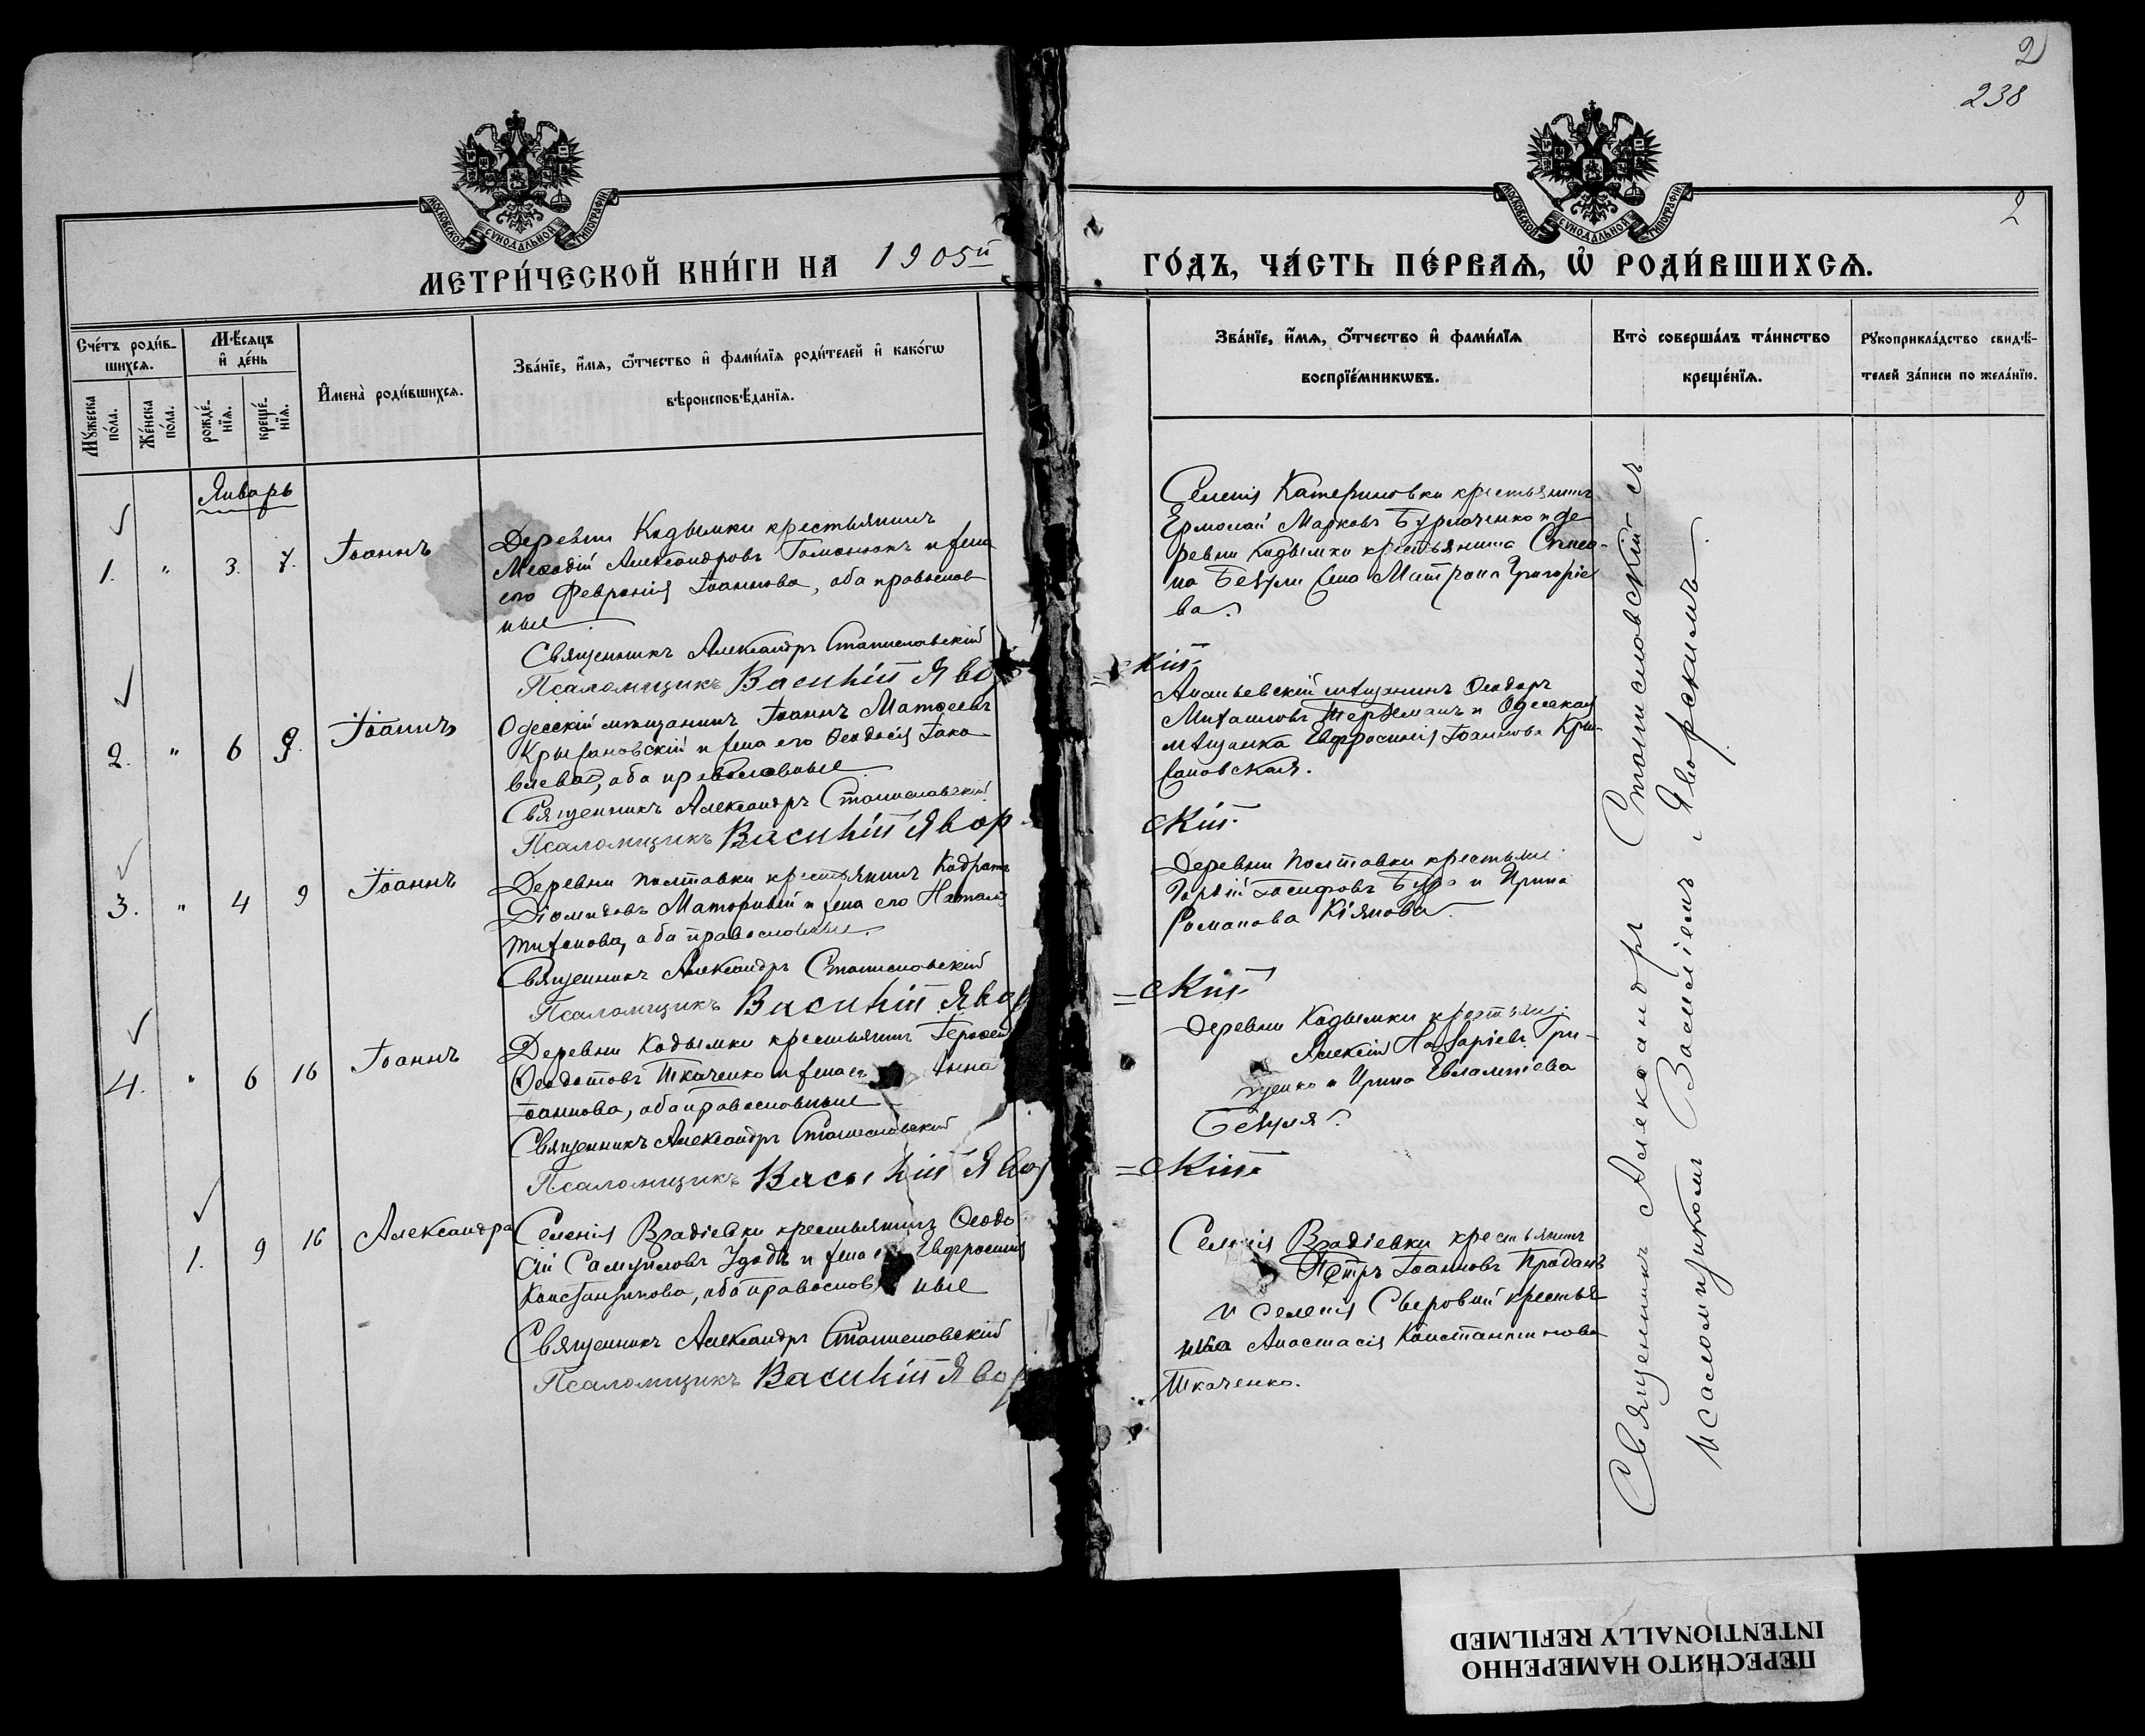 2
238
2
МОСКОВСКОЙ СУНОДАЛЬНОЙ ТИПОГРАФІИ
МОСКОВСКОЙ СУНОДАЛЬНОЙ ТИПОГРАФІИ
МЕТРИ́ЧЕСКОЙ КНИ́ГИ НА 1905й ГО́ДЪ, ЧА́СТЬ ПЕ́РВАѦ, Ѡ҆ РОДИ́ВШИХСѦ.
Сче́тъ роди́в-
шихсѧ.
Мꙋ́жеска по́ла.
Же́нска по́ла.
Мѣ́сѧцъ
и҆ де́нь
рожде́-
нїѧ.
креще́-
нїѧ.
И҆мена̀ роди́вшихсѧ.
Зва́нїе, и҆́мѧ, ѻ҆́тчество и҆ фами́лїѧ роди́телей и҆ како́гѡ
вѣроисповѣ́данїѧ.
Зва́нїе, и҆́мѧ, ѻ҆́тчество и҆ фами́лїѧ
воспрїе́мникѡвъ.
Кто̀ соверша́лъ та́инство
креще́нїѧ.
Рꙋкоприкла́дство свидѣ́-
телей за́писи по жела́нїю.
Январь
1. " 3. 7. Іоаннъ
Деревни Кодымки крестьянинъ
Меѳодій Александровъ и жена
его Февронія Іоаннова, оба православ
ные
Священникъ Александръ Станиславскій
Псаломщикъ Василій Явор
=скій
Селенія Катериновки крестьянинъ
Ермолай Марковъ Бурлаченко и де
ревни Кодымки крестьянина
жена Матрона Григоріе
ва.
2. " 6 9. Іоаннъ
Одесскій мѣщанинъ Іоаннъ Матѳеевъ
Крыжановскій и жена его Ѳеодосія Іако
влева, оба православные
Священникъ Александръ Станиславскій
Псаломщикъ Василій Явор
скій
Ананьевскій мѣщанинъ Ѳеодоръ
Михаиловъ и Одесская
мѣщанка Евфросинія Іоаннова Кры
жановская.
3. " 4 9 Іоаннъ
Деревни Полтавки крестьянинъ Кодратъ
Діомидовъ и жена его Наталія
Тихонова, оба православные
Священникъ Александръ Станиславскій
Псаломщикъ Василій Явор
=скій
Деревни Полтавки крестьяне:
Іосифовъ и Ирина
Романова Кіянова
4. " 6 16 Іоаннъ
Деревни Кодымки крестьянинъ Іероѳей
Ѳеодотовъ Ткаченко и жена ег Анна
Іоаннова, оба православные
Священникъ Александръ Станиславскій
Псаломщикъ Василій Явор
=скій
Деревни Кодымки крестьяне:
Алексій Назаріевъ Гри-
щенко и Ирина Евлампіева
1. 9 16 Александра
Селенія Врадіевки крестьянинъ Ѳеодо
сій Самуиловъ Удодъ и жена его Евфросинія
Константинова, оба православ ные
Священникъ Александръ Станиславскій
Псаломщикъ Василій Явор
Селенія Врадіевки крестьянинъ
Петръ Іоанновъ Проданъ
и селенія Сыровой крестья
нка Анастасія Константинова
Ткаченко.
Священникъ Александръ Станиславскій съ
псаломщикомъ Василіемъ Яворскимъ.
ПЕРЕСНЯТО НАМЕРЕННО
INTENTIONALLY REFILMED